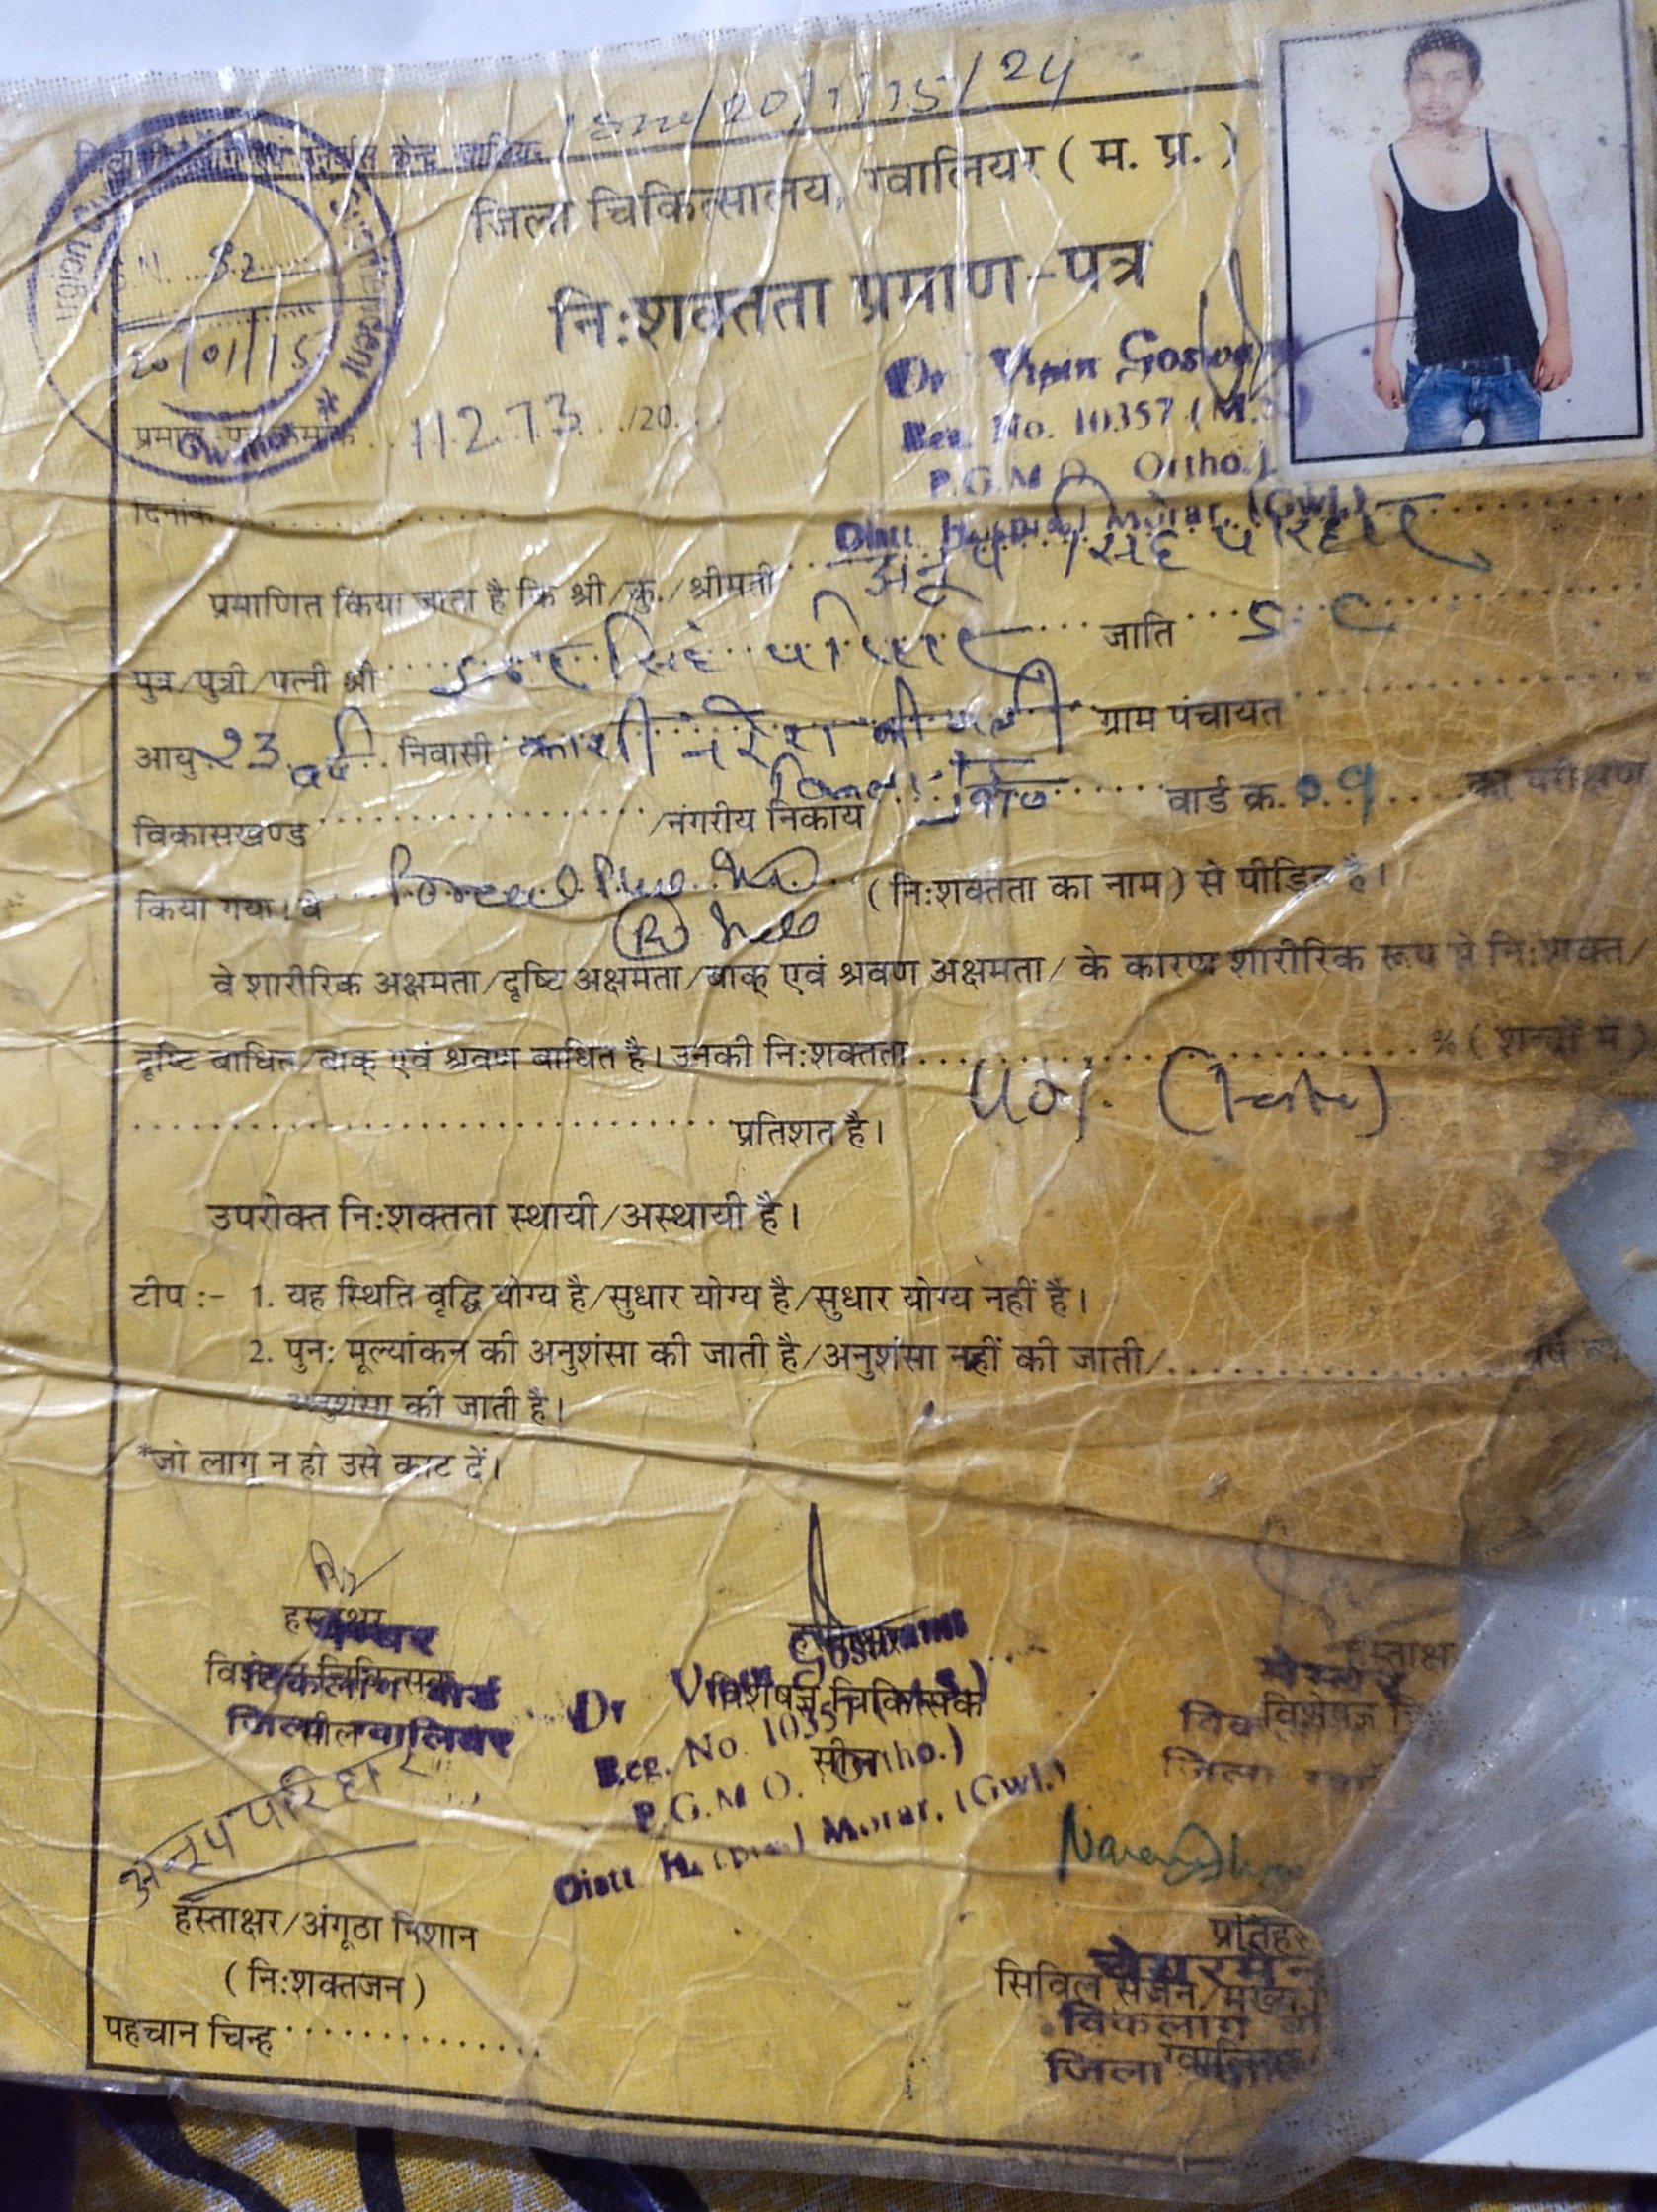 20/1/15/24
जिला चिकित्सालय, ग्वालियर ( म. प्र. )
S.N. 82
20/01/15
निःशक्तता प्रमाण-पत्र
Dr Vipin Goswa
Reg. No. 10357 (M.
P.G.M.O. Ortho.)
Distt Hospital Morar, (Gwl.)
प्रमाण पत्र क्रमांक 11273 /20
दिनांक
प्रमाणित किया जाता है कि श्री/कु./श्रीमती अनूप सिंह परिहार
पुत्र/पुत्री/पत्नी श्री सिंह परिहार जाति S.C
आयु 23 वर्ष निवासी काशी नरेश की गली ग्राम पंचायत
विकासखण्ड /नगरीय निकाय वार्ड क्र. 09 का परीक्षण
किया गया। वे (निःशक्तता का नाम) से पीड़ित है।
वे शारीरिक अक्षमता/दृष्टि अक्षमता/वाक् एवं श्रवण अक्षमता/ के कारण शारीरिक रूप से निःशक्त/
दृष्टि बाधित/वाक् एवं श्रवण बाधित है। उनकी निःशक्तता % ( शब्दों में )
40%
प्रतिशत है।
उपरोक्त निःशक्तता स्थायी/अस्थायी है।
टीप :- 1. यह स्थिति वृद्धि योग्य है/सुधार योग्य है/सुधार योग्य नहीं है।
2. पुनः मूल्यांकन की अनुशंसा की जाती है/अनुशंसा नहीं की जाती/ वर्ष
अनुशंसा की जाती है।
*जो लागू न हो उसे काट दें।
हस्ताक्षर हस्ताक्षर हस्ताक्ष
विशेषज्ञ चिकित्सक विशेषज्ञ चिकित्सक विशेषज्ञ चि
सील सील
मेम्बर
विकलांग बोर्ड
जिला ग्वालियर
Dr Vipin Goswami
Reg. No. 10357
P.G.M.O. Ortho.)
Distt Hospital Morar, (Gwl.)
मेम्बर
जिला
अनूप परिहार
हस्ताक्षर/अंगूठा निशान
( निःशक्तजन )
पहचान चिन्ह
प्रतिह
सिविल सर्जन/मुख्य
चेयरमेन
विकलांग
जिला ग्वालियर